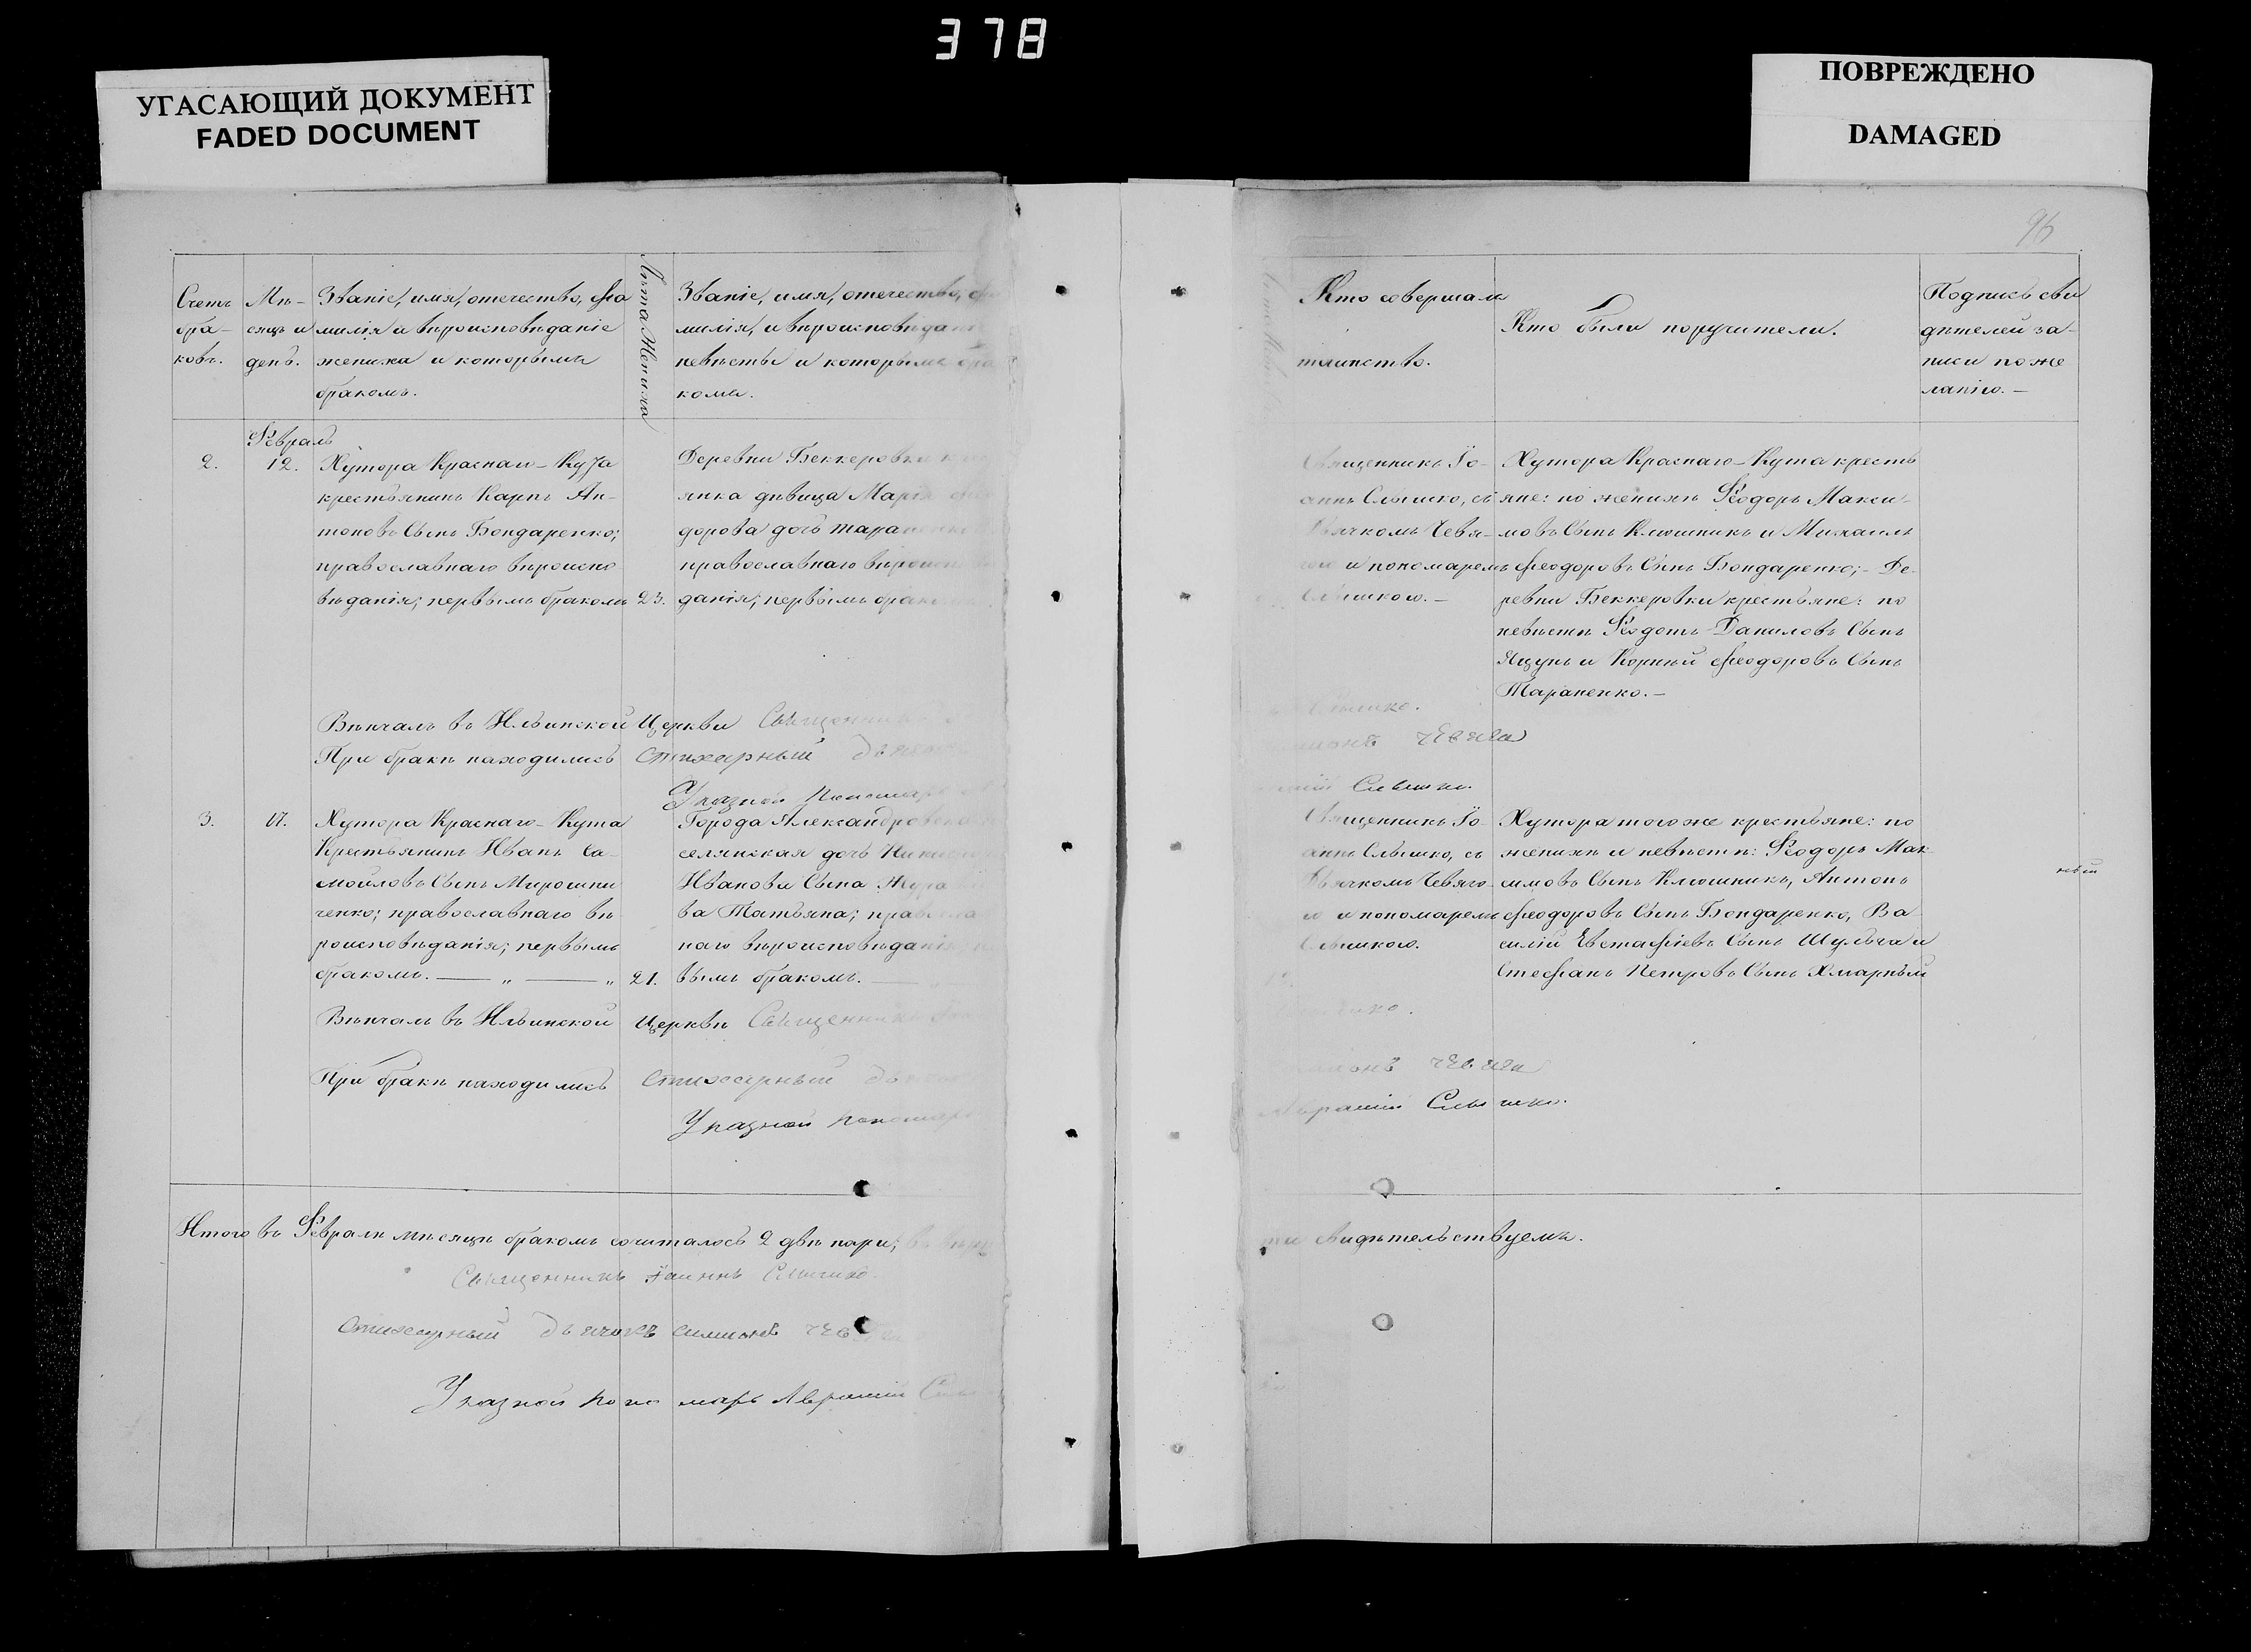 378
УГАСАЮЩИЙ ДОКУМЕНТ
FADED DOCUMENT
ПОВРЕЖДЕНО
DAMAGED
96
Счетъ
бра-
ковъ.
Мѣ-
сяцъ и
день.
Званіе, имя, отечество, фа
милія и вѣроисповѣданіе
жениха и которымъ
бракомъ.
Лѣта Жениха
Званіе, имя, отечество,
милія, и вѣроисповѣдан
невѣсты и которымъ бра
комъ.
Кто совершалъ
таинство.
Кто были поручители.
Подпись сви
дѣтелей за-
писи по же
ланію.—
Февраль
2.
12.
Хутора Краснаго-Кута
крестьянинъ Карпъ Ан-
тоновъ Сынъ Бондаренко;
православнаго вѣроиспо
вѣданія; первымъ бракомъ
23.
Деревни Беккеровки
янка дѣвица Марія
дорова дочь Тара
православнаго вѣроисп
данія; первымъ брак
Священникъ Іо-
аннъ Слышко, съ
Дьячкомъ Чевя-
гою и пономаремъ
Слышкою.—
Хутора Краснаго-Кута кресть
яне: по женихѣ Феодоръ Макси-
мовъ Сынъ Клюшникъ и Михаилъ
Феодоровъ Сынъ Бондаренко;- Де-
ревни Беккеровки крестьяне: по
невѣстѣ Федотъ Даниловъ Сынъ
Яцунъ и Корнѣй Феодоровъ Сынъ
Тараненко.—
Вѣнчалъ въ Ильинской Церкви Священникъ
Слышко.
При бракѣ находились Стихарный дьячокъ
Чевяга
Указной Пономарь
Слышко.
3.
17.
Хутора Краснаго-Кута
Крестьянинъ Иванъ Са-
мойловъ Сынъ Мирошни
ченко; православнаго вѣ
роисповѣданія; первымъ
бракомъ. — „ — „
21.
Города Александровска
селянская дочь
Иванова Сына Жура
ва Татьяна; правосла
наго вѣроисповѣданія
вымъ бракомъ.—
Священникъ Іо-
аннъ Слышко, съ
Дьячкомъ Чевяго-
ю и пономаремъ
Слышкою.
Хутора того же крестьяне: по
женихѣ и невѣстѣ: Феодоръ Мак-
симовъ Сынъ Клюшникъ, Антонъ
Феодоровъ Сынъ Бондаренко, Ва-
силій Евстафіевъ Сынъ Шульга и
Стефанъ Петровъ Сынъ Хмарный
Вѣнчалъ въ Ильинской Церкви Священникъ
При бракѣ находились Стихарный
Чевяга
Указной Пономарь
Аврамій Слышко.
Итого въ Февралѣ мѣсяцѣ бракомъ сочиталось 2 двѣ пары;
свидѣтельствуемъ.
Священникъ Іоаннъ Слышко.
Стихарный дьячокъ Симионъ
Указной Пономарь Аврамій